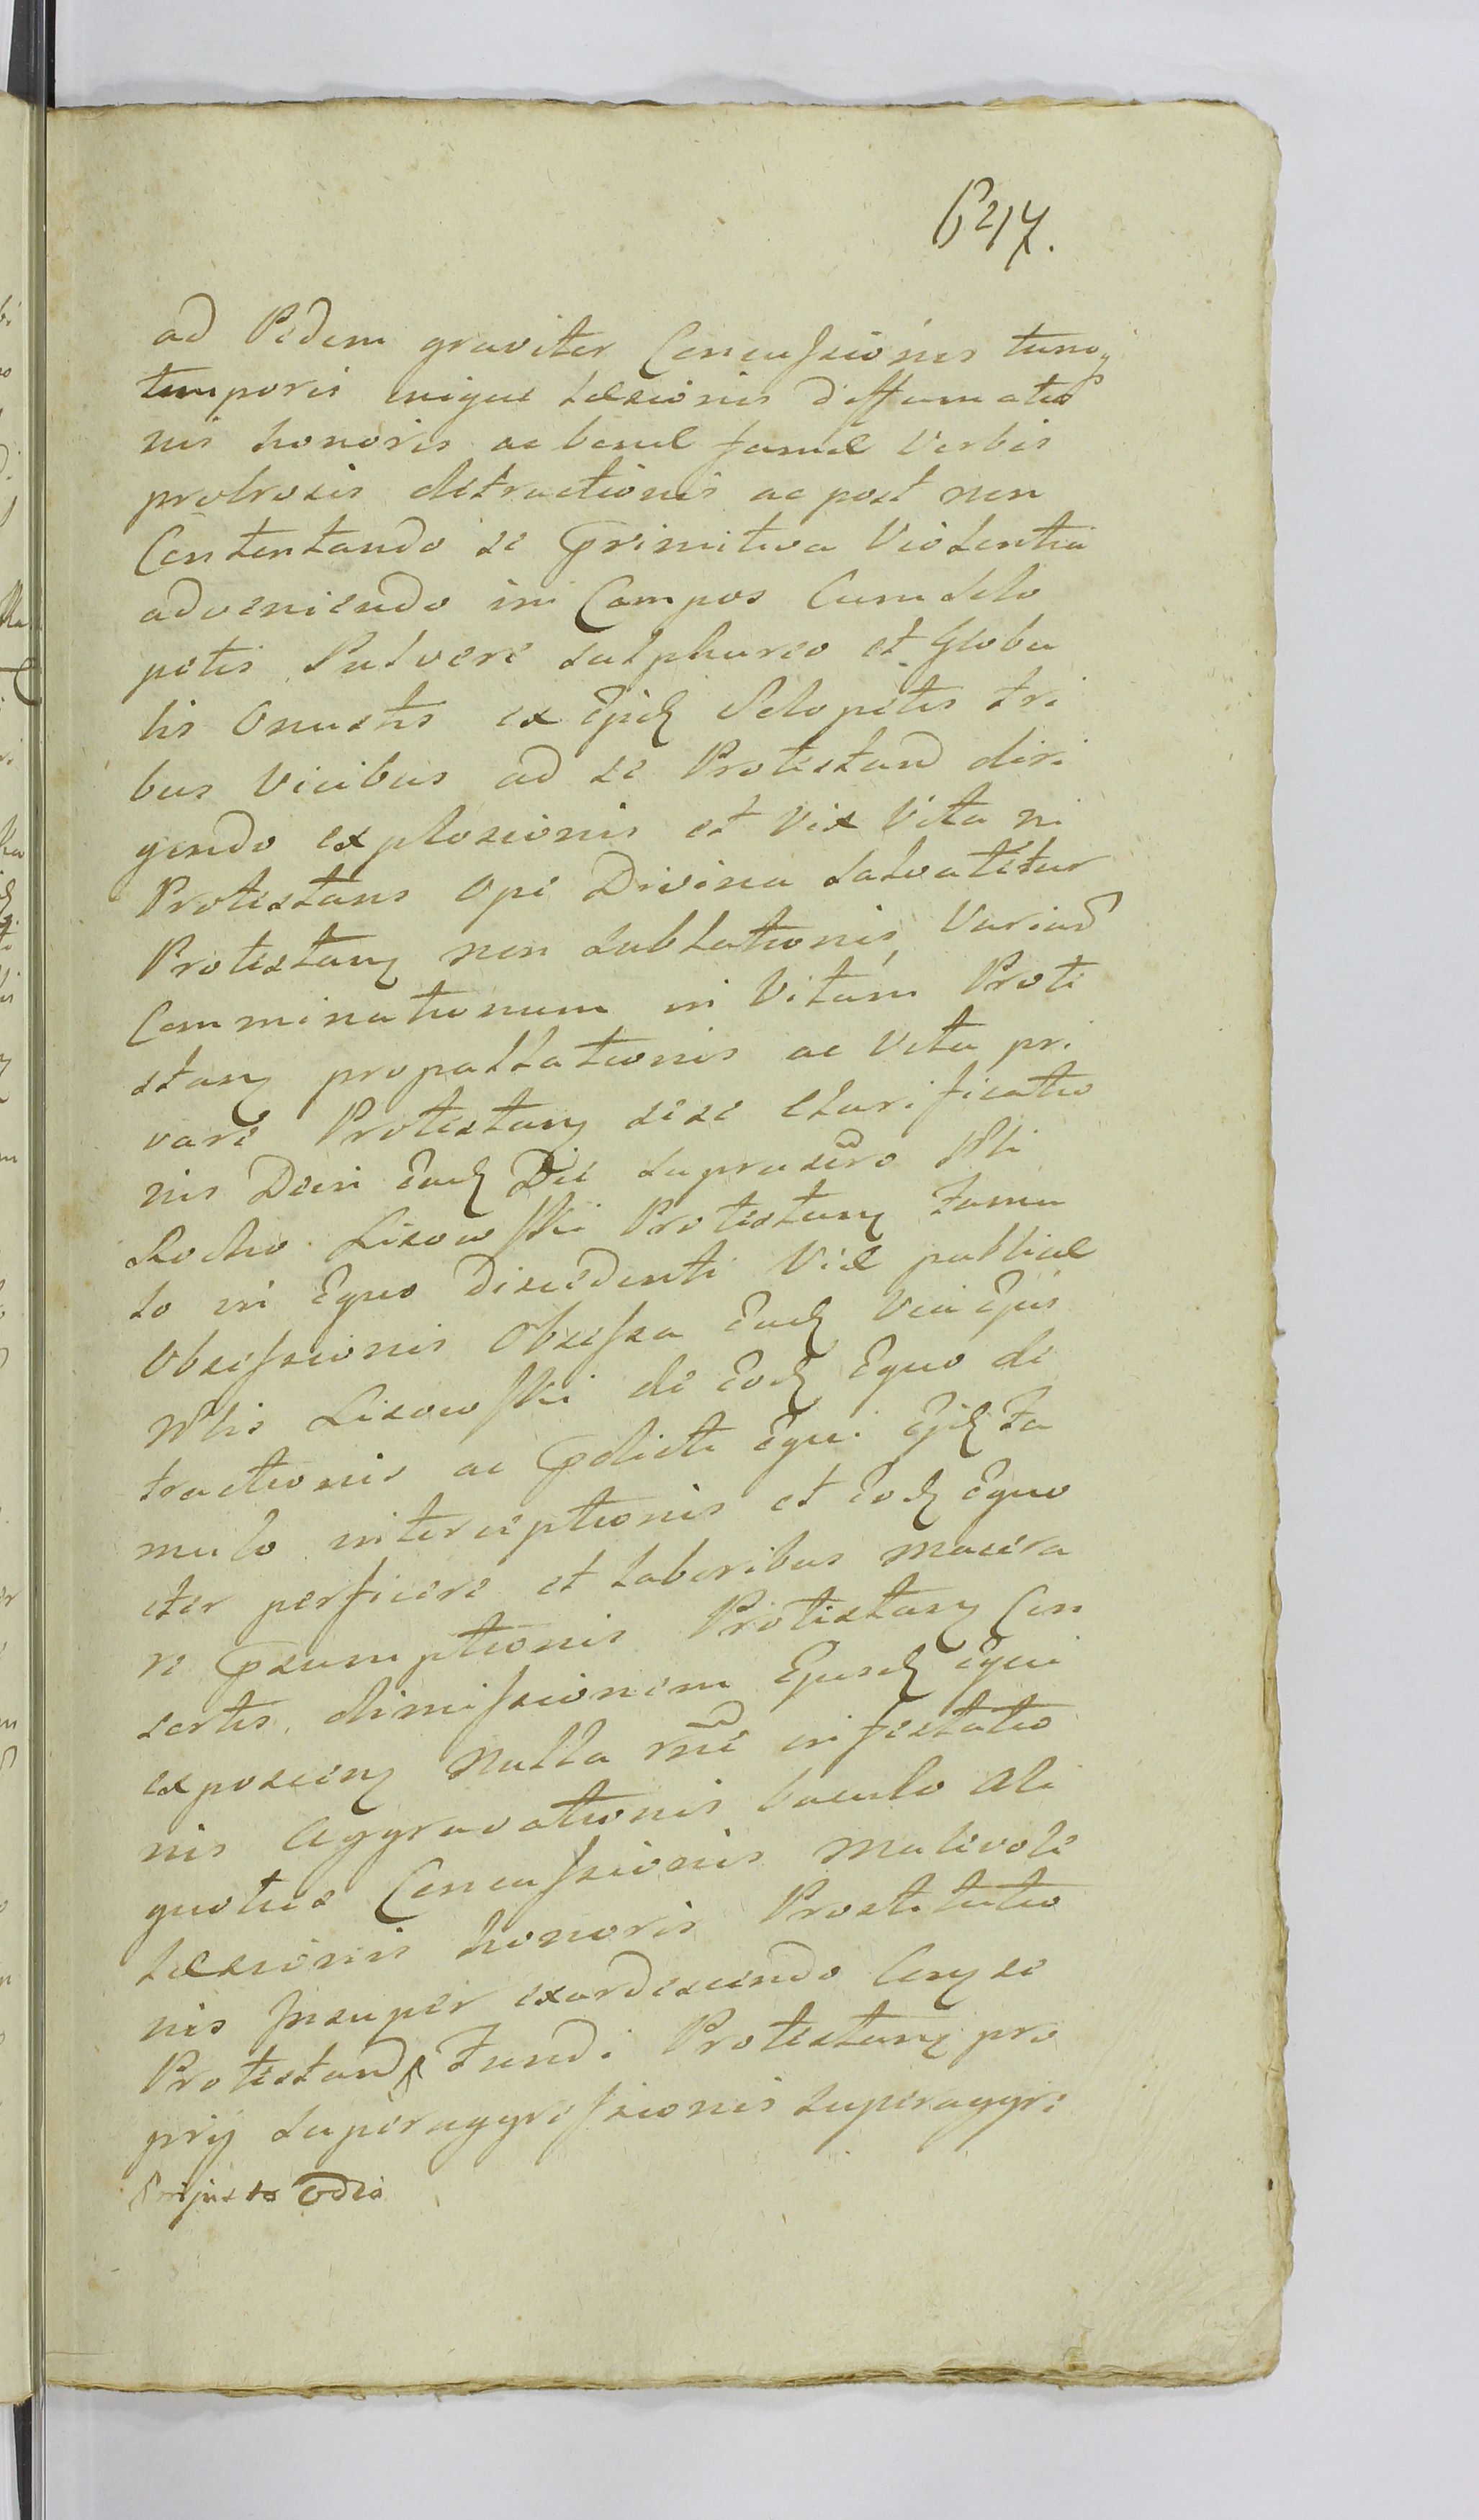 647.
ad Pedem graviter Concussionis tunc
temporis eiique Læsionis diffamatio
nis honoris ac benæ famæ Verbis
probrosis detractionis ac post non
Contentando se primitiva Violentia
adveniendo in Campos Cum sclo
petis Pulvere sulphureo et Globu
lis Onustis ex Ejsd Sclopetis tri
bus Vicibus ad se Protestand diri
gendo explosionis et vix Vita ni
Protestans Ope Divina salvatetur
Protestan non sublationis Variar
Comminationum in Vitam Prote
stan propallationis ac Vita pri
vare Protestan sese clarificatio
nis Dein Ead Die supra
Rocho Lisowski Protestan Famu
lo in Equo Discedenti Viæ publicæ
Obsessionis Obsessa Ead Via Ejus
Lisowski de Eod Equo de
tractionis ac pdicti Equi Ejsd Fa
mulo interceptionis et Eod Equo
iter perficere et laboribus macera
re psumptionis Protestan Con
sortis dimissionem Ejusd Equi
exposcen Nulla rne infestatio
nis Aggravationis baculo Ali
quoties Concussionis Malevole
Læsionis honoris Prostitutio
nis Insuper exardescendo Con se
Protestand Fundi Protestan pro
prij superaggressionis superaggre
Injusto Odio